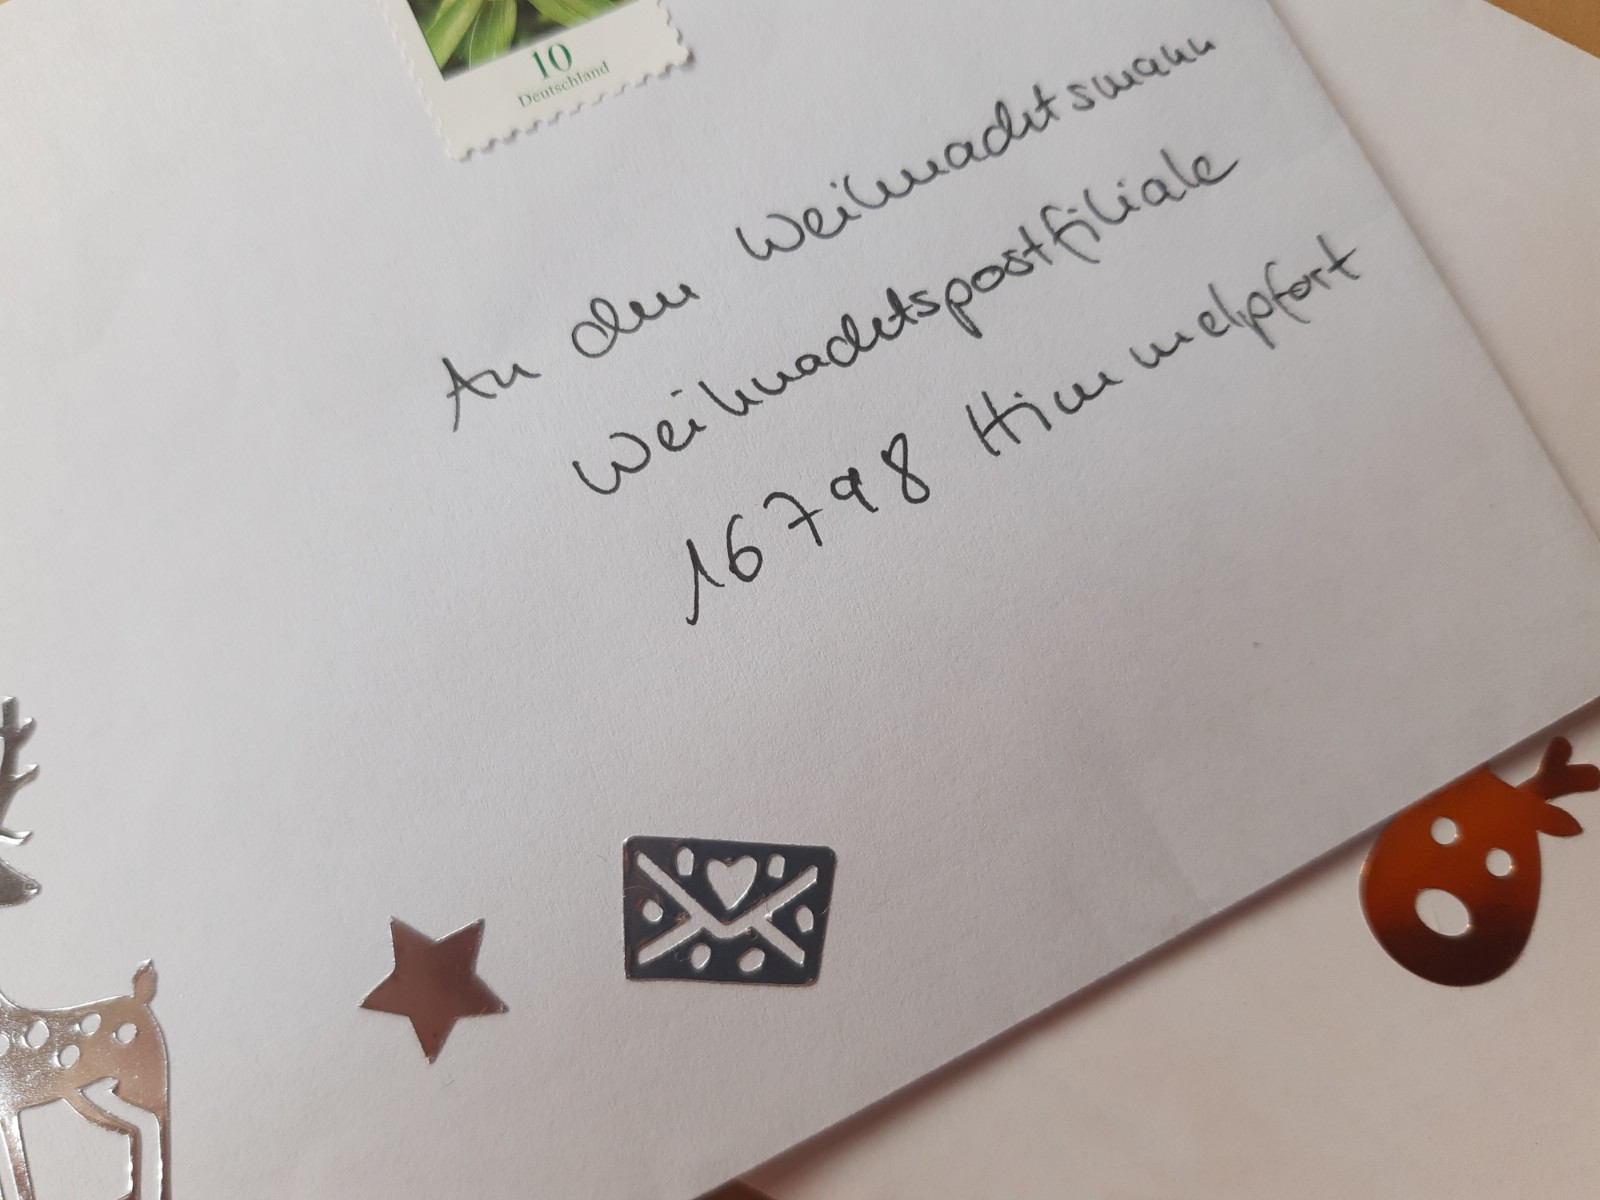 10
Deutschland
An den Weihnachtsmann
Weihnachtspostfiliale
16798 Himmelpfort